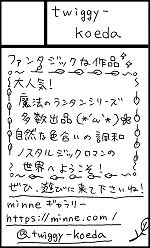 twiggy-
koeda
ファンタジックな作品
大人気!
魔法のランタンシリーズ
多数出品(*'∀'*)
自然な色合いの調和
ノスタルジックロマンの
世界へようこそ!
ぜひ、遊びに来て下さいね!
minneギャラリー
https://minne.com/
@twiggy-koeda